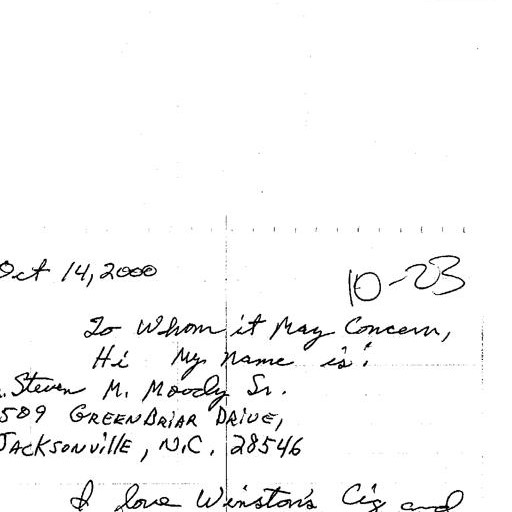 Oct 14, 2000
10-23
To Whom it May Concern,
Hi My name is:
. Steven M. Moody Sr.
589 GREENBRIAR DRIVE,
JACKSONVILLE, N.C. 28546
I love Winston's Cig and